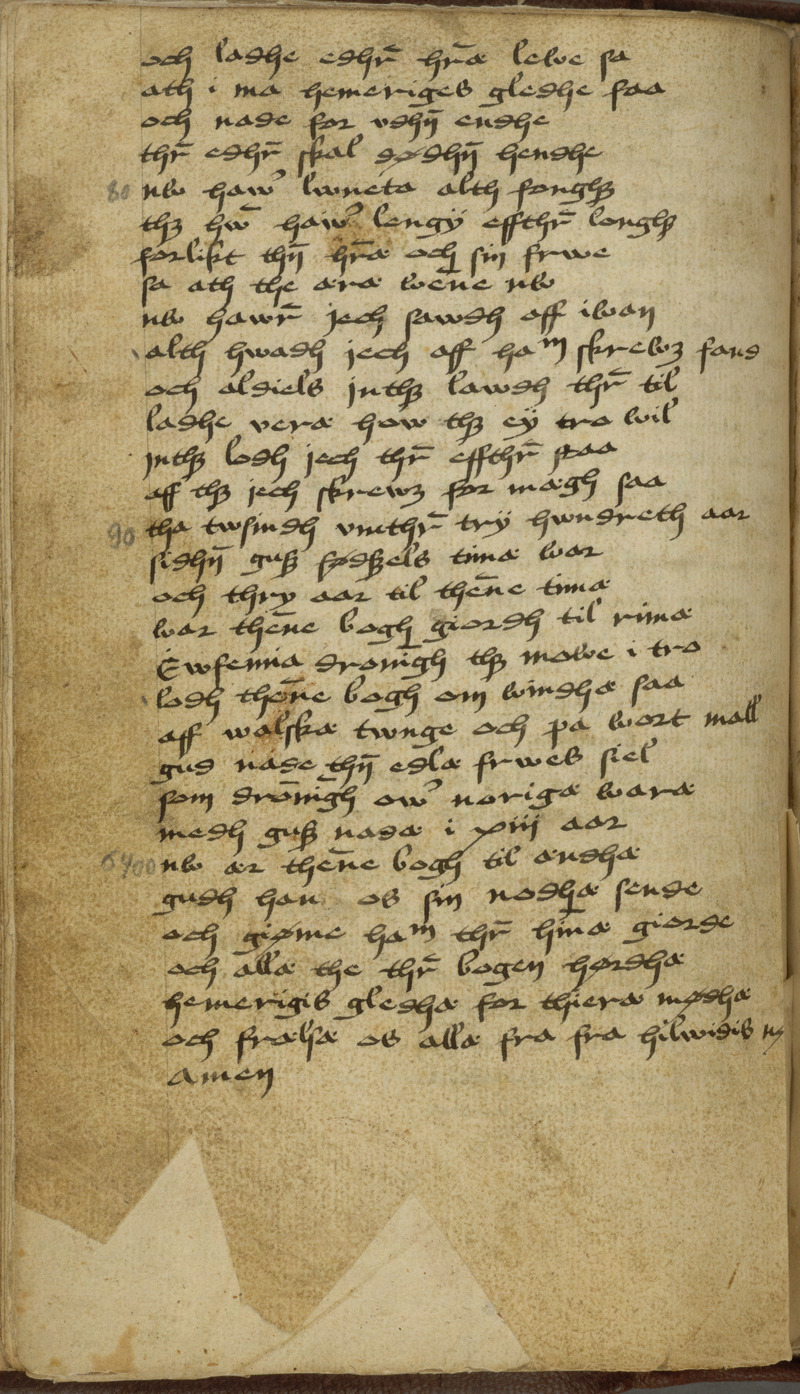 och ladhe edhr̄ hr̄æ lewe sa
ath i ma hemeriges gledhe faa
och nade for vdhn̄ endhe
thr̄ edhr̄ skal dødhn̄ hendhe
80 nw haw' lwneta alth fonghꝫ
thꝫ hw̄ haw' lengÿ effthr̄ longhꝫ
forlikt thn̄ hr̄æ och sin frwe
sa ath the æræ wene nw
nw hawr̄ jech sawdh aff iwan
alth hwadh jech aff haᵐ skrewꝫ fand
och aldiels inthꝫ lawdh thr̄ til
ladhe veræ how thꝫ eÿ tro wil
jnthꝫ lodh jech thr̄ effthr̄ staa
aff thꝫ jech skrewꝫ for megh saa
90 tha twsindh vinthr̄ trÿ hwndreth aar
sidhn̄ gutz fødzels timæ war
och thry aar til then̄e timæ
war then̄e bogh giordh til rimæ
Ewfemia dronigh thꝫ mowe i tro
lodh then̄e bogh om windhæ saa
aff walskæ twnge och pa wort mall
gud nade thn̄ edlæ frwes siel
som drōnigh ow' norigæ waræ
medh gutz nadæ i xiii aar
6400 nw ær then̄e bogh til ændhæ
gudh han os sin nodhæ sende
och giøme haᵐ thr̄ hinæ giorde
och allæ the thr̄ bogen hørdhæ
hemerigis gledhæ for thieræ mødhæ
och frælsæ os allæ fra fra hilwidis
amen